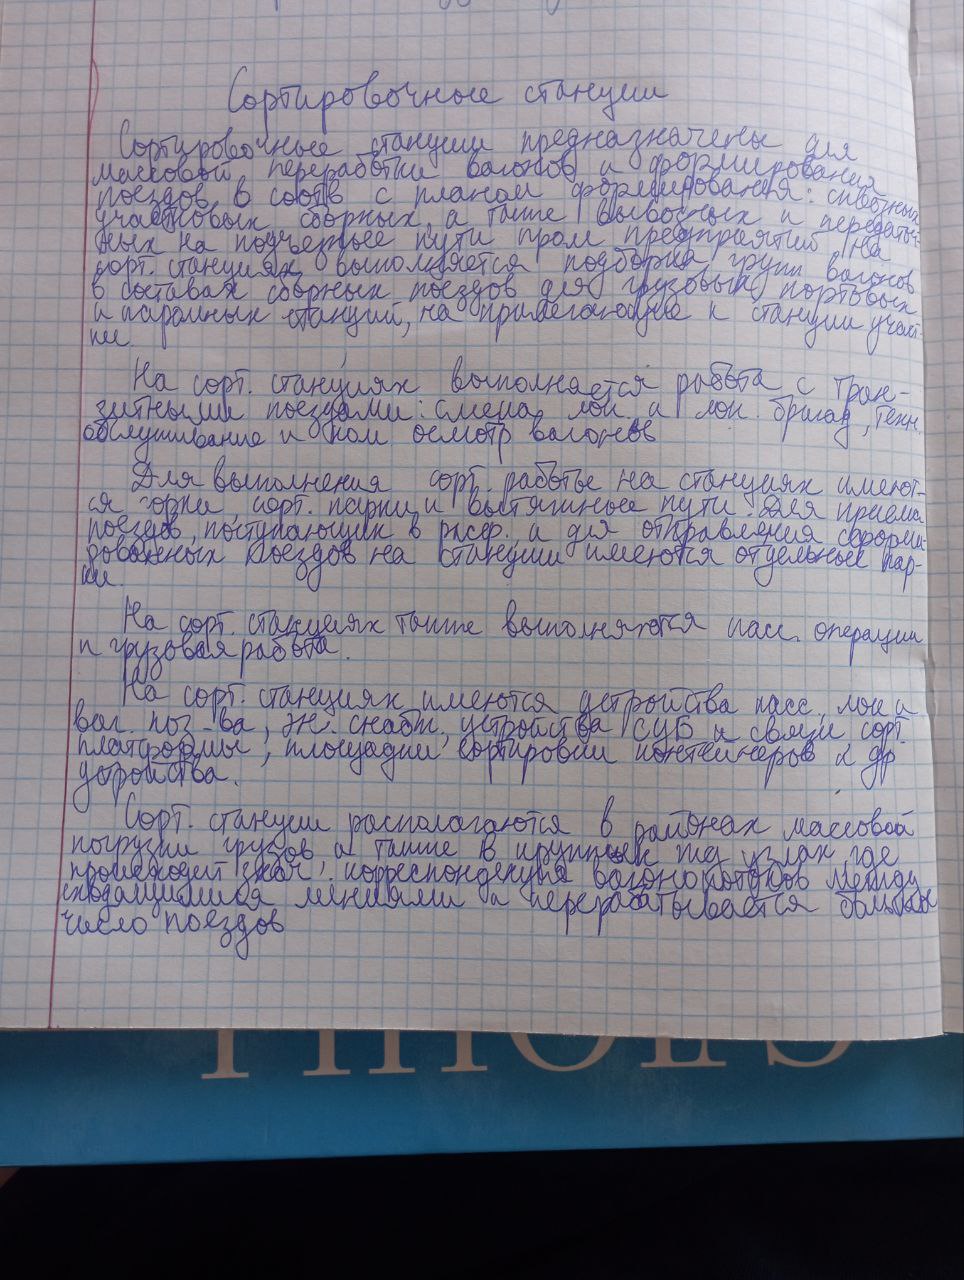 Сортировочные станции
Сортировочные станции предназначены для
массовой переработки вагонов и формирования
поездов в соотв с планом формирования: сквозных
участковых, сборных, а также вывозных и передаточ-
ных на подъездные пути пром предприятий На
сорт. станциях выполняется подборка групп вагонов
в составах сборных поездов для грузовых, портовых
и паромных станций, на примегающие к станции участ-
ки.
На сорт. станциях выполняется работа с тран-
зитными поездами: смена лок. и лок. бригад, техн.
обслуживание и ком осмотр вагонов
Для выполнения сорт. работы на станциях имеют-
ся горки, сорт. парки и вытяжные пути. Для приема
поездов, поступающих в расф. и для отправления сформи-
рованных поездов на станции имеются отдельные пар-
ки.
На сорт. станциях также выполняются пасс. операции
и грузовая работа.
На сорт. станциях имеются устройства пасс., лок и
ваг. хоз-ва, эл. снабж. устройства СЦБ и связи сорт.
платформы, площадки сортировки контейнеров и др
устройства.
Сорт. станции располагаются в районах массовой
погрузки грузов а также в крупных жд узлах, где
происходит корреспонденция вагонопотоков между
сходящимися линиями и перерабатывается большое
число поездов